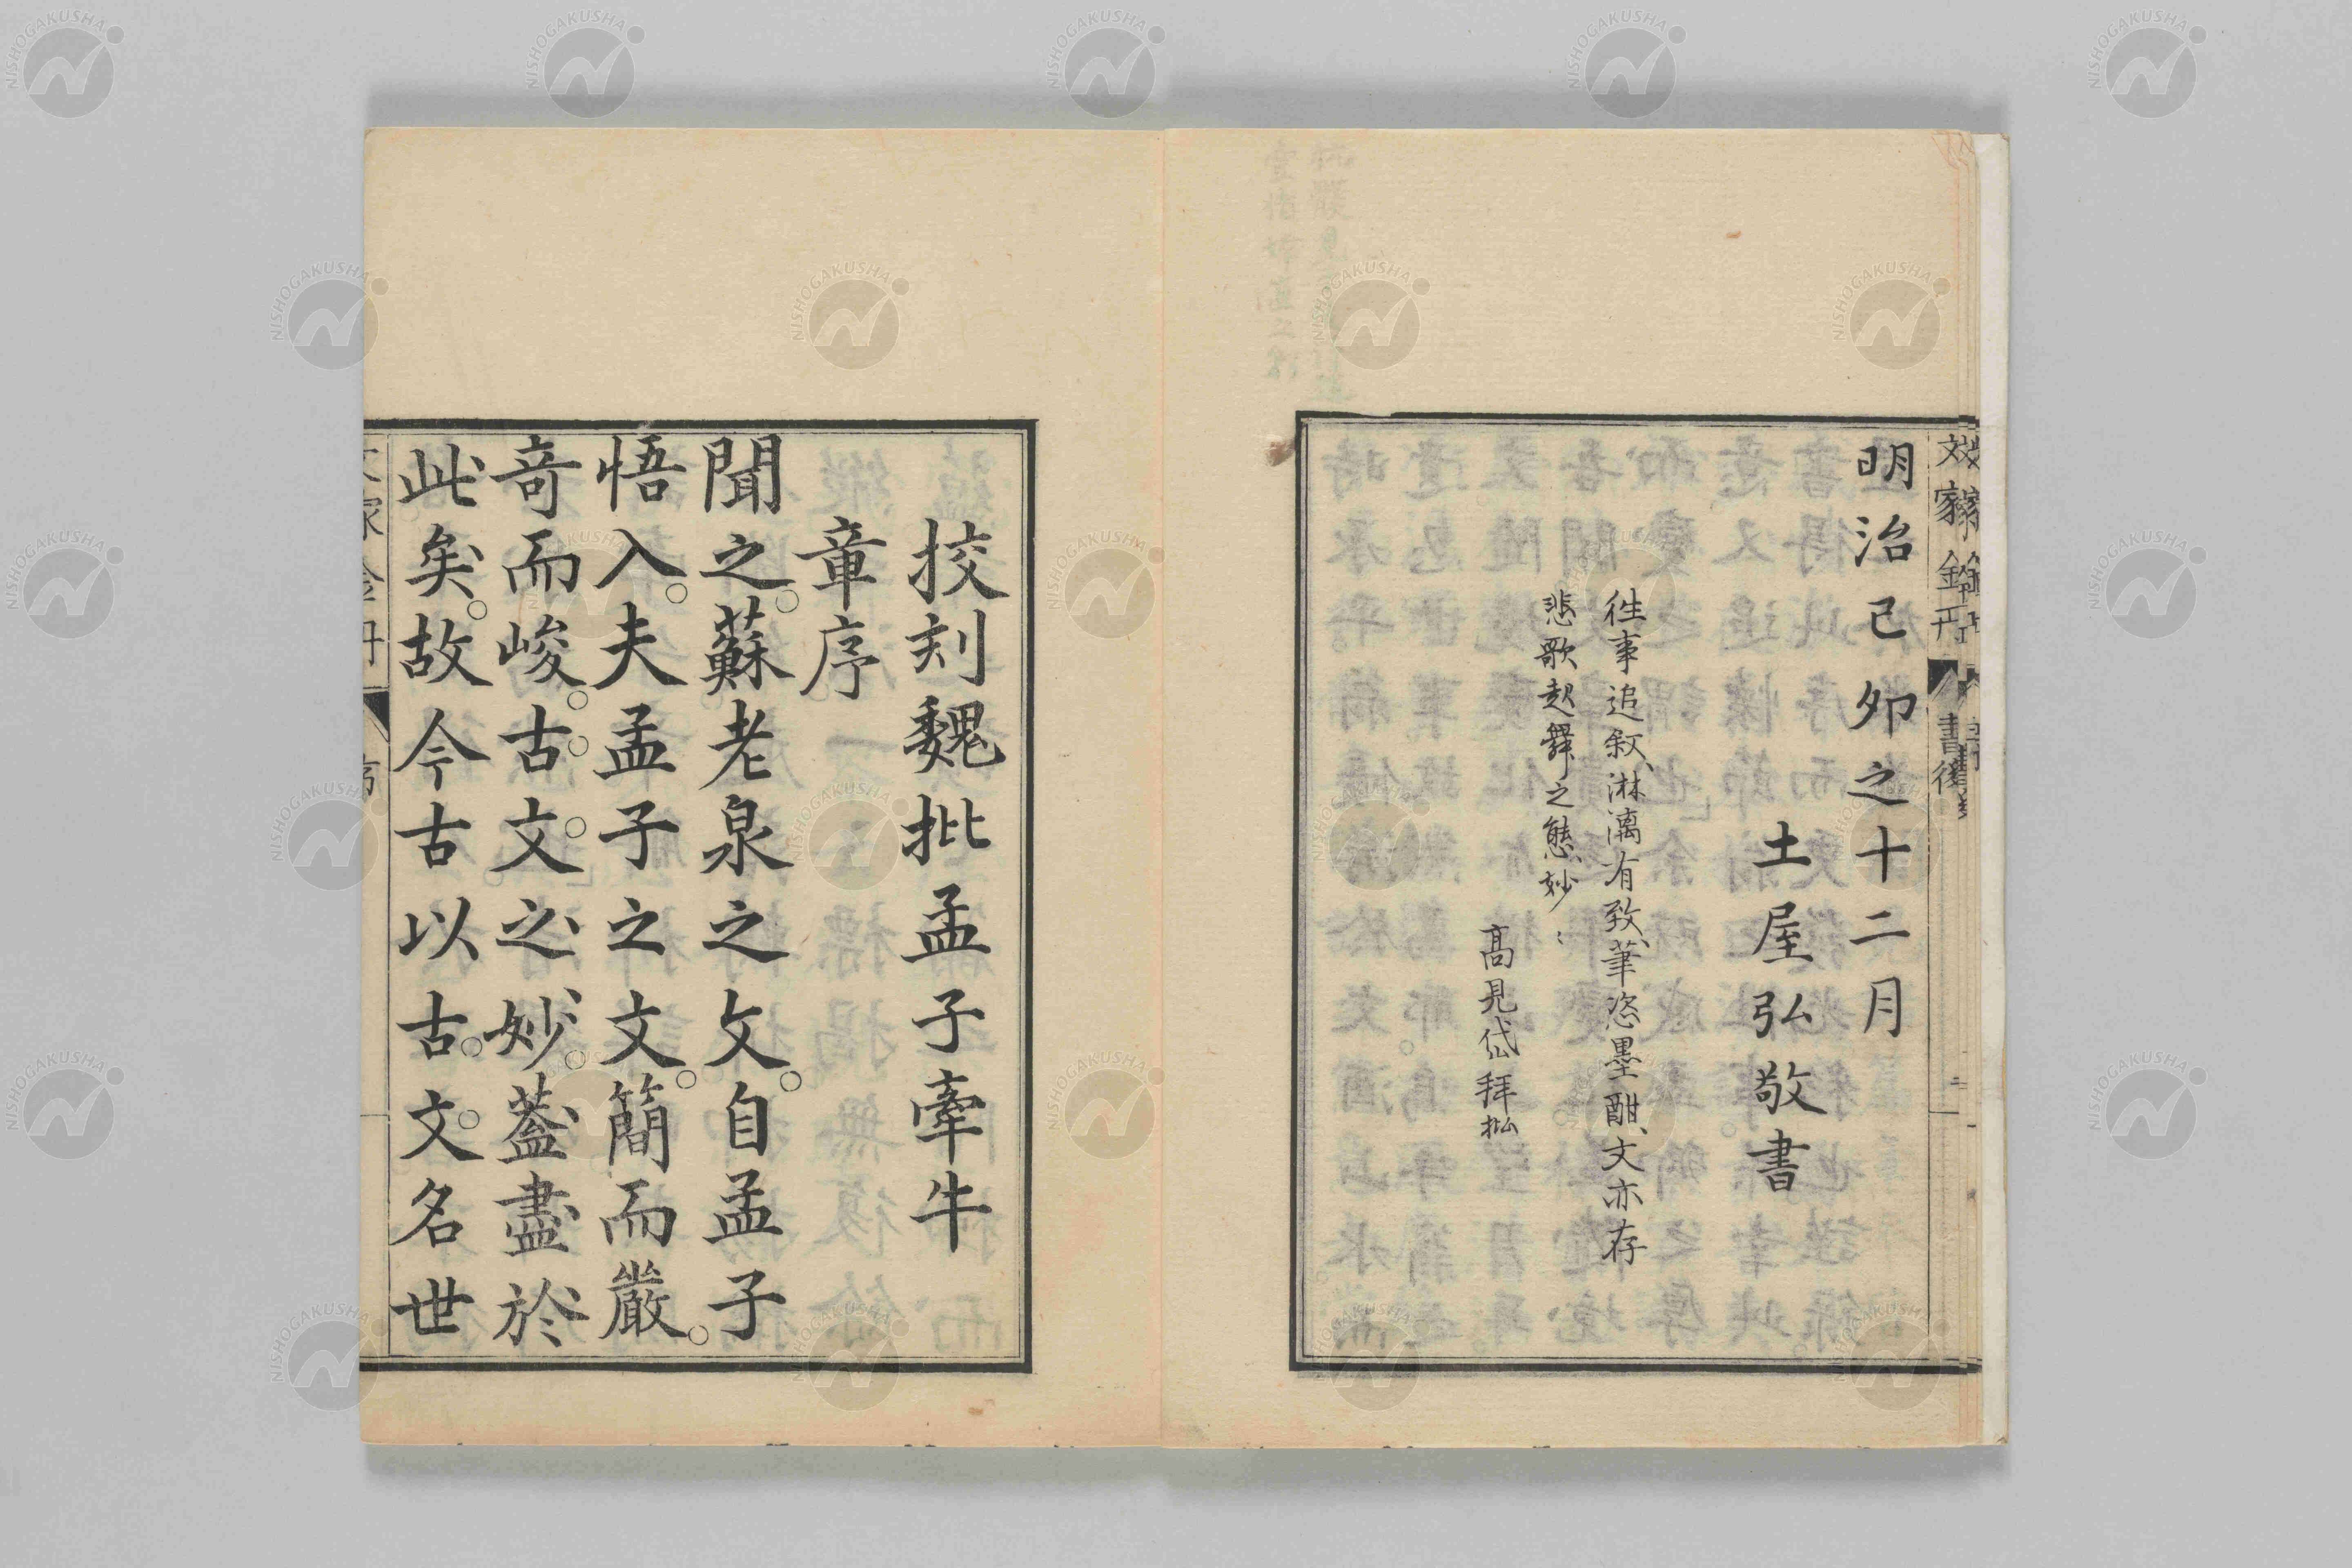 明治己夘之十二月
土屋弘敬書
徃事追叙、淋漓有致、筆恣墨酣、文亦存
悲歌起舞之態、妙〻
高見岱拜批
挍刻魏批孟子牽牛
章序
聞之。蘇老泉之文。自孟子
悟入。夫孟子之文。簡而嚴。
奇而峻。古文之妙。葢盡於
此矣。故今古以古文名世
書後
NISHOGAKUSHA